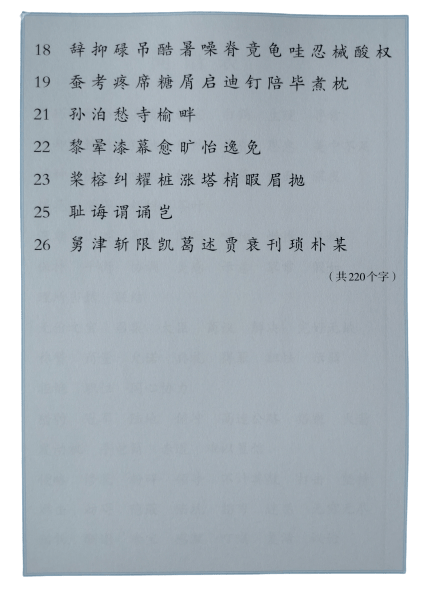 18 辞抑碌吊酷暑嗓脊竟龟哇忍械酸权
19 蚕考疼席糖屑启迪钉陪毕煮枕
21 孙泊愁寺榆畔
22 黎晕漆幕愈旷怡逸免
23 桨榕纠耀桩涨塔梢暇眉抛
25 耻诲谓诵岂
26 舅津斩限凯葛述贾衰刊琐朴某
（共220个字）